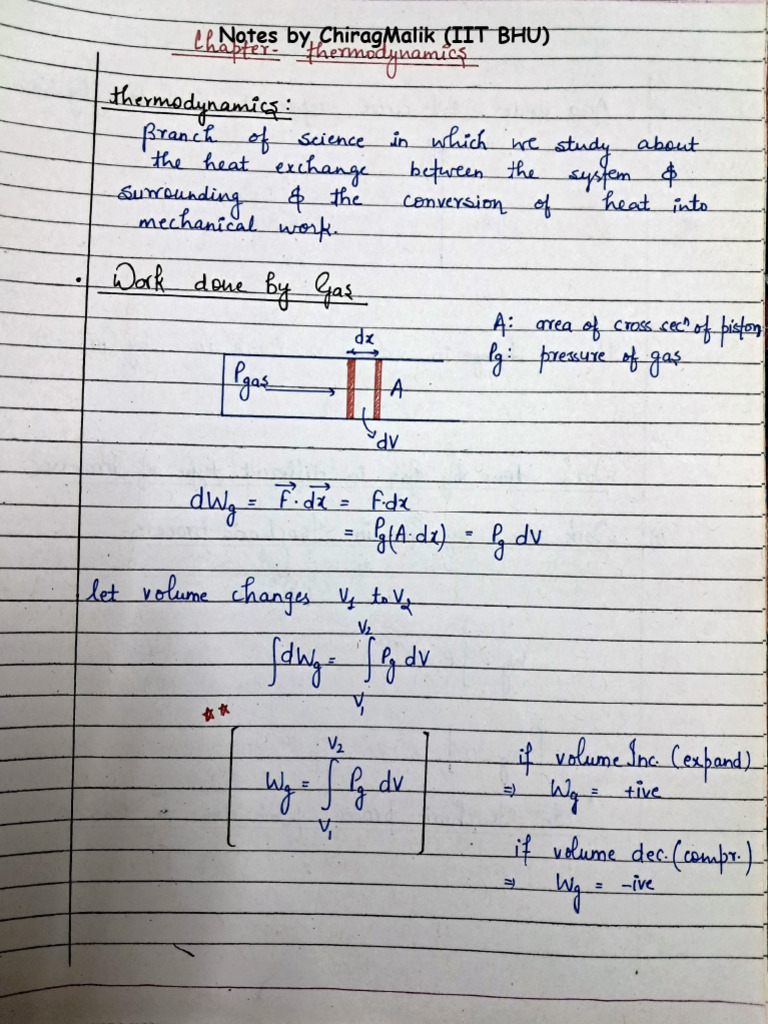 Notes by ChiragMalik (IIT BHU)
Chapter- thermodynamics
thermodynamics:
Branch of science in which we study about
the heat exchange between the system &
surrounding & the conversion of heat into
mechanical work.
• Work done by Gas
A: area of cross secⁿ of piston
Pg: pressure of gas
dx
Pgas
A
dV
dWg = F⃗ · dx⃗ = F·dx
= Pg(A·dx) = Pg dV
let volume changes V1 to V2
∫dWg = ∫V1V2 Pg dV
** 
Wg = ∫V1V2 Pg dV
if volume Inc. (expand)
⇒ Wg = +ive
if volume dec. (compr.)
⇒ Wg = -ive